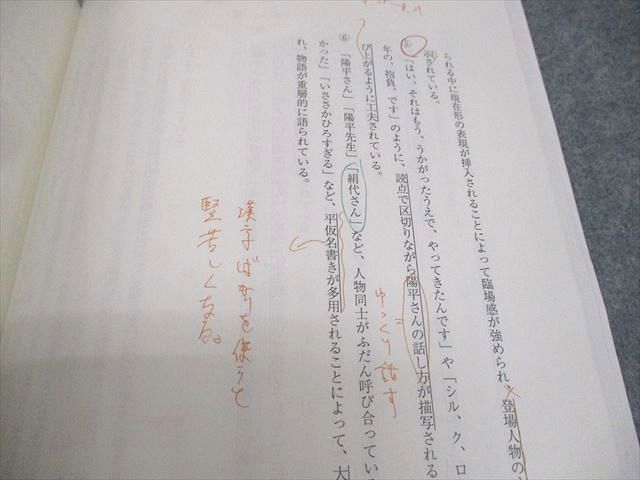 られる中に現在形の表現が挿入されることによって臨場感が強められ、登場人物の
されている。
⑤「はい、それはもう、うかがったうえで、やってきたんです」や「シル、ク、ロ
年の、抱負、です」のように、読点で区切りながら陽平さんの話し方が描写される
び上がるように工夫されている。
ゆっくり話す
⑥「陽平さん」「陽平先生」「絹代さん」など、人物同士がふだん呼び合ってい
かった」「いささかひろすぎる」など、平仮名書きが多用されることによって、大
れ、物語が重層的に語られている。
漢字ばかりを使うと
堅苦しくなる。